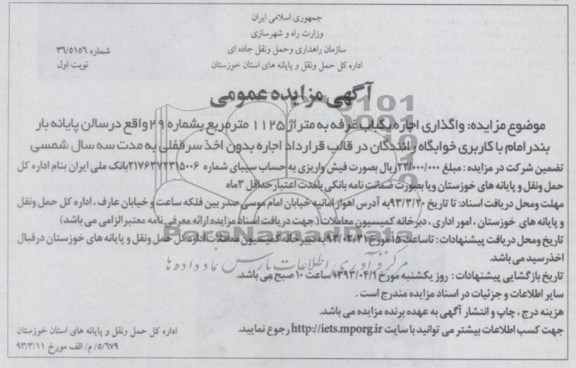 جمهوری اسلامی ایران
وزارت راه و شهرسازی
سازمان راهداری وحمل ونقل جاده ای
اداره کل حمل ونقل و پایانه های استان خوزستان
شماره ۳۶/۵۱۵۶
نوبت اول
آگهی مزایده عمومی
موضوع مزایده: واگذاری اجاره یکباب غرفه به متراژ ۱۱۲۵ مترمربع بشماره ۲۹ واقع درسالن پایانه بار
بندر امام با کاربری خوابگاه رانندگان در قالب قرارداد اجاره بدون اخذ سرقفلی به مدت سه سال شمسی
تضمین شرکت در مزایده : مبلغ ۲۲/۰۰۰/۰۰۰ریال بصورت فیش واریزی به حساب سیبای شماره ۲۱۷۶۳۷۲۳۱۵۰۰۶بانک ملی ایران بنام اداره کل
حمل ونقل و پایانه های خوزستان ویا بصورت ضمانت نامه بانکی بامدت اعتبار حداقل ۳ماه
مهلت ومحل دریافت اسناد: تا تاریخ ۹۳/۳/۲۰به آدرس اهواز امانیه خیابان امام موسی صدر بین فلکه ساعت و خیابان عارف ، اداره کل حمل ونقل
و پایانه های خوزستان ، امور اداری ، دبرخانه کمیسیون معاملات( جهت دریافت اسناد مزایده ارائه معرفی نامه معتبر الزامی می باشد)
تاریخ ومحل دریافت پیشنهادات : تاساعت ۱۵مورخ ۹۳/۰۳/۳۱به دبیرخانه کمیسیون معاملات اداره کل حمل ونقل و پایانه های خوزستان درقبال
اخذرسید می باشد.
تاریخ بازگشایی پیشنهادات : روز یکشنبه مورخ ۱۳۹۳/۰۴/۱ساعت ۱۰ صبح می باشد.
سایر اطلاعات و جزئیات در اسناد مزایده مندرج است .
هزینه درج ، چاپ و انتشار آگهی به عهده برنده مزایده می باشد.
جهت کسب اطلاعات بیشتر می توانید با سایت http://iets.mporg.ir رجوع نمایید.
اداره کل حمل ونقل و پایانه های استان خوزستان
۵/۶۷۹/م/ الف مورخ ۹۳/۳/۱۱
ParsNamadData
مرکز فرآوری اطلاعات پارس نماد داده ها